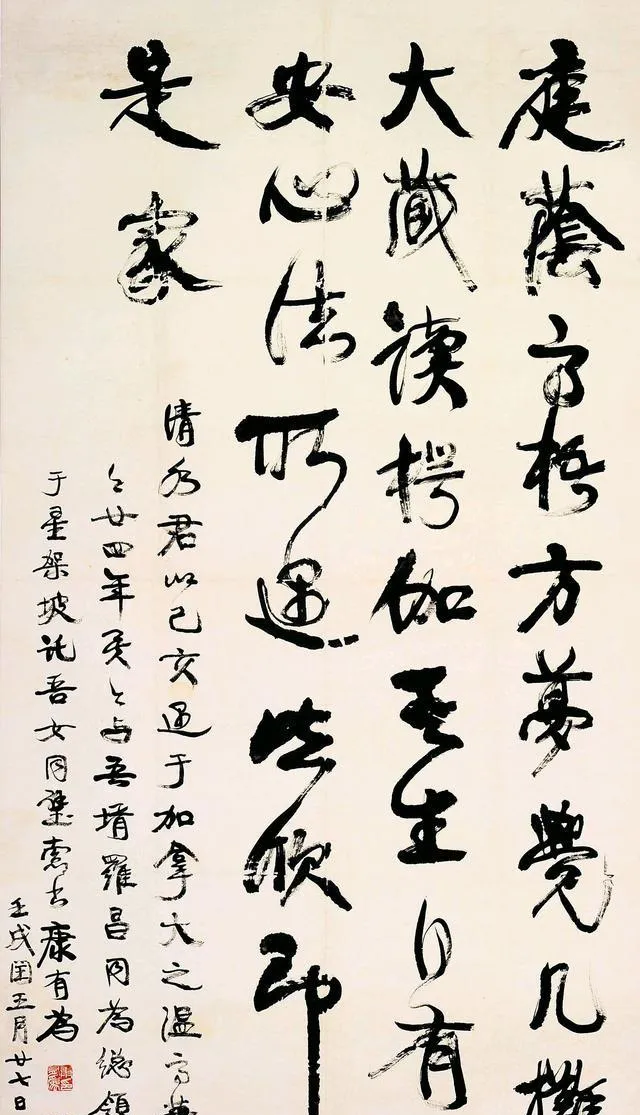 庭蔭高梧方夢覺几
大藏讀楞伽吾生自有
安心法所遇皆欣即
是家
清水君以己亥遇于加拿大之温高華
今廿四年矣今与吾壻羅昌同為總領
于星架坡託吾女同璧索書康有為
壬戌閏五月廿七日